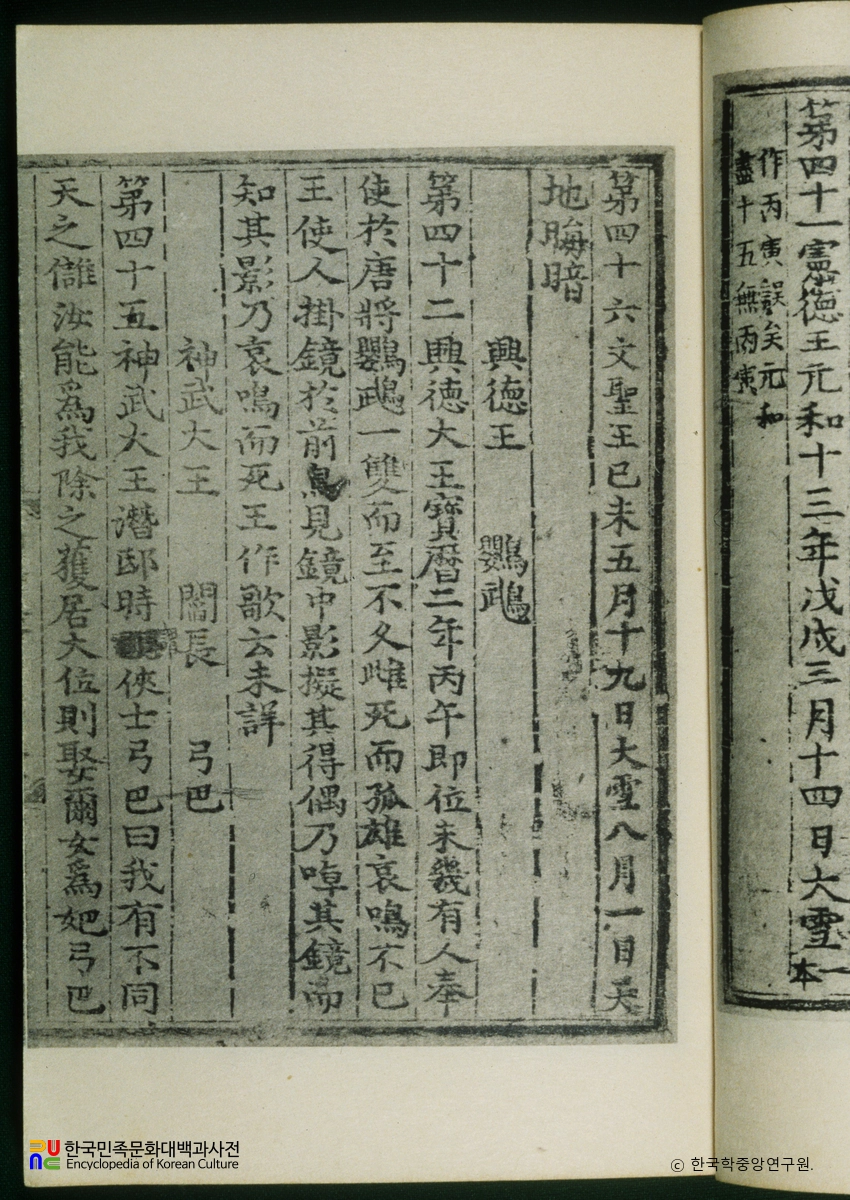 第四十一憲德王元和十三年戊戌三月十四日大雪一本
作丙寅誤矣元和
盡十五無丙寅
第四十六文聖王己未五月十九日大雪八月一日天
地晦暗
興德王 鸚鵡
第四十二興德大王寶曆二年丙午即位未幾有人奉
使於唐將鸚鵡一雙而至不久雌死而孤雄哀鳴不已
王使人掛鏡於前鳥見鏡中影擬其得偶乃啅其鏡而
知其影乃哀鳴而死王作歌云未詳
神武大王 閻長 弓巴
第四十五神武大王潛邸時俠士弓巴曰我有不同
天之讎汝能爲我除之獲居大位則娶爾女爲妃弓巴
한국민족문화대백과사전
Encyclopedia of Korean Culture
ⓒ 한국학중앙연구원.